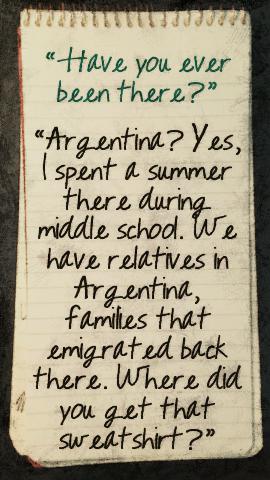 “Have you ever
been there?”
“Argentina? Yes,
I spent a summer
there during
middle school. We
have relatives in
Argentina,
families that
emigrated back
there. Where did
you get that
sweatshirt?”